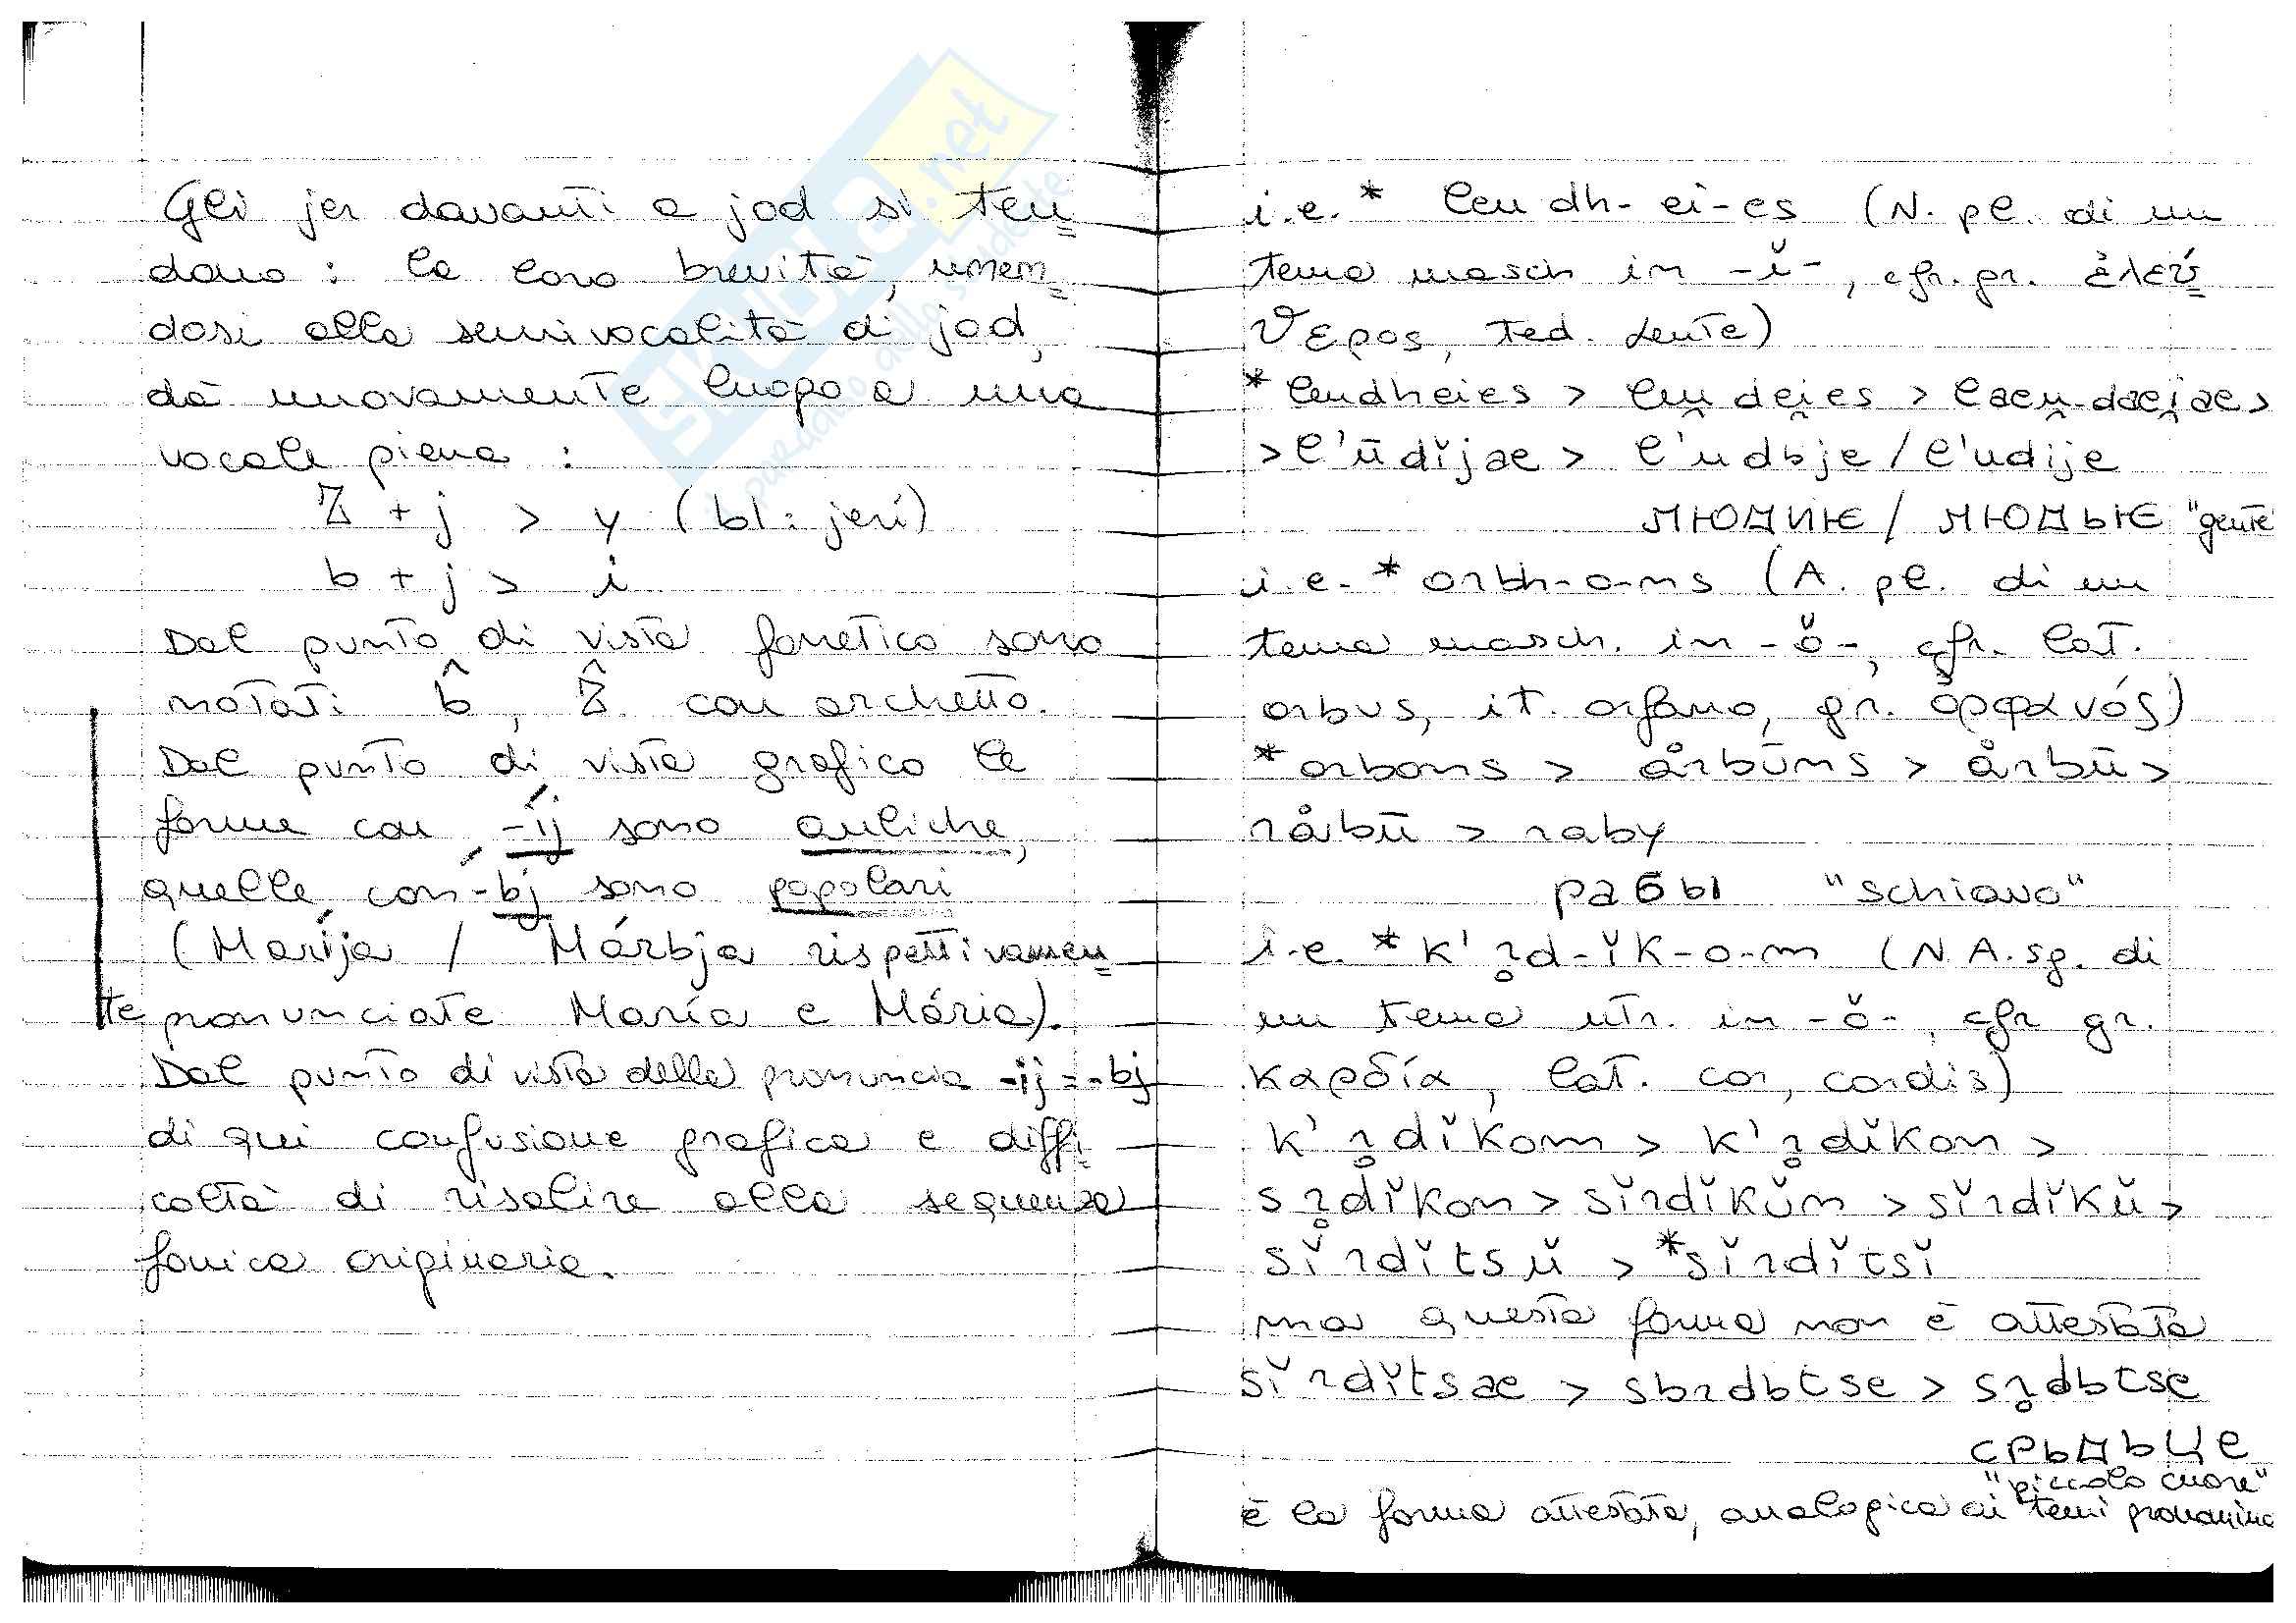 Gli jer davanti a jod si ten
dono : la loro brevità, unen
dosi alla semivocalità di jod,
dà nuovamente luogo a una
vocale piena :
ъ + j > y (ы: jerí)
ь + j > i
Dal punto di vista fonetico sono
notati ь̂, ъ̂ con archetto.
Dal punto di vista grafico le
forme con -íj sono auliche,
quelle con ́-ьj sono popolari
(Maríja / Márьja rispettivamen
te pronunciate María e Mária).
Dal punto di vista della pronuncia -ij = -ьj
di qui confusione grafica e diffi
coltà di risalire alla sequenza
fonica originaria.
i.e. * leu dh- ei-es (N. pl. di un
tema masch in -ĭ-, cfr. gr. ἐλεύ
θερος, ted. Leute)
* leudheies > leu̯dei̯es > laeu̯-daei̯ae >
> l'ūdĭjae > l'udьje / l'udije
людиѥ / людьѥ "gente
i.e. * orbh-o-ns (A. pl. di un
tema masch. in -ŏ-, cfr. lat.
orbus, it. orfano, gr. ὀρφανός)
* orbons > årbūns > årbū >
råbū > raby
рабы "schiavo"
i.e. * k' r̥d-ĭk-o-m (N A. sg. di
un tema ntr. in -ŏ-, cfr gr.
καρδία, lat. cor, cordis)
k' r̥dĭkom > k' r̥dĭkon >
sr̥dĭkon > sĭrdĭkŭn > sĭrdĭkŭ >
sĭrdĭtsŭ > *sĭrdĭtsĭ
ma questa forma non è attestata
sĭrdĭtsae > sьrdьtse > sr̥dьtse
срьдьце
"piccolo cuore"
è la forma attestata, analogica ai temi pronomina
SKUOLA.net